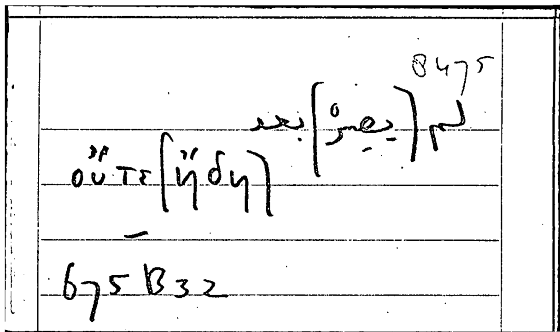 8475
لم (يصر) بعد
οὔτε (ἤδη)
675 B32